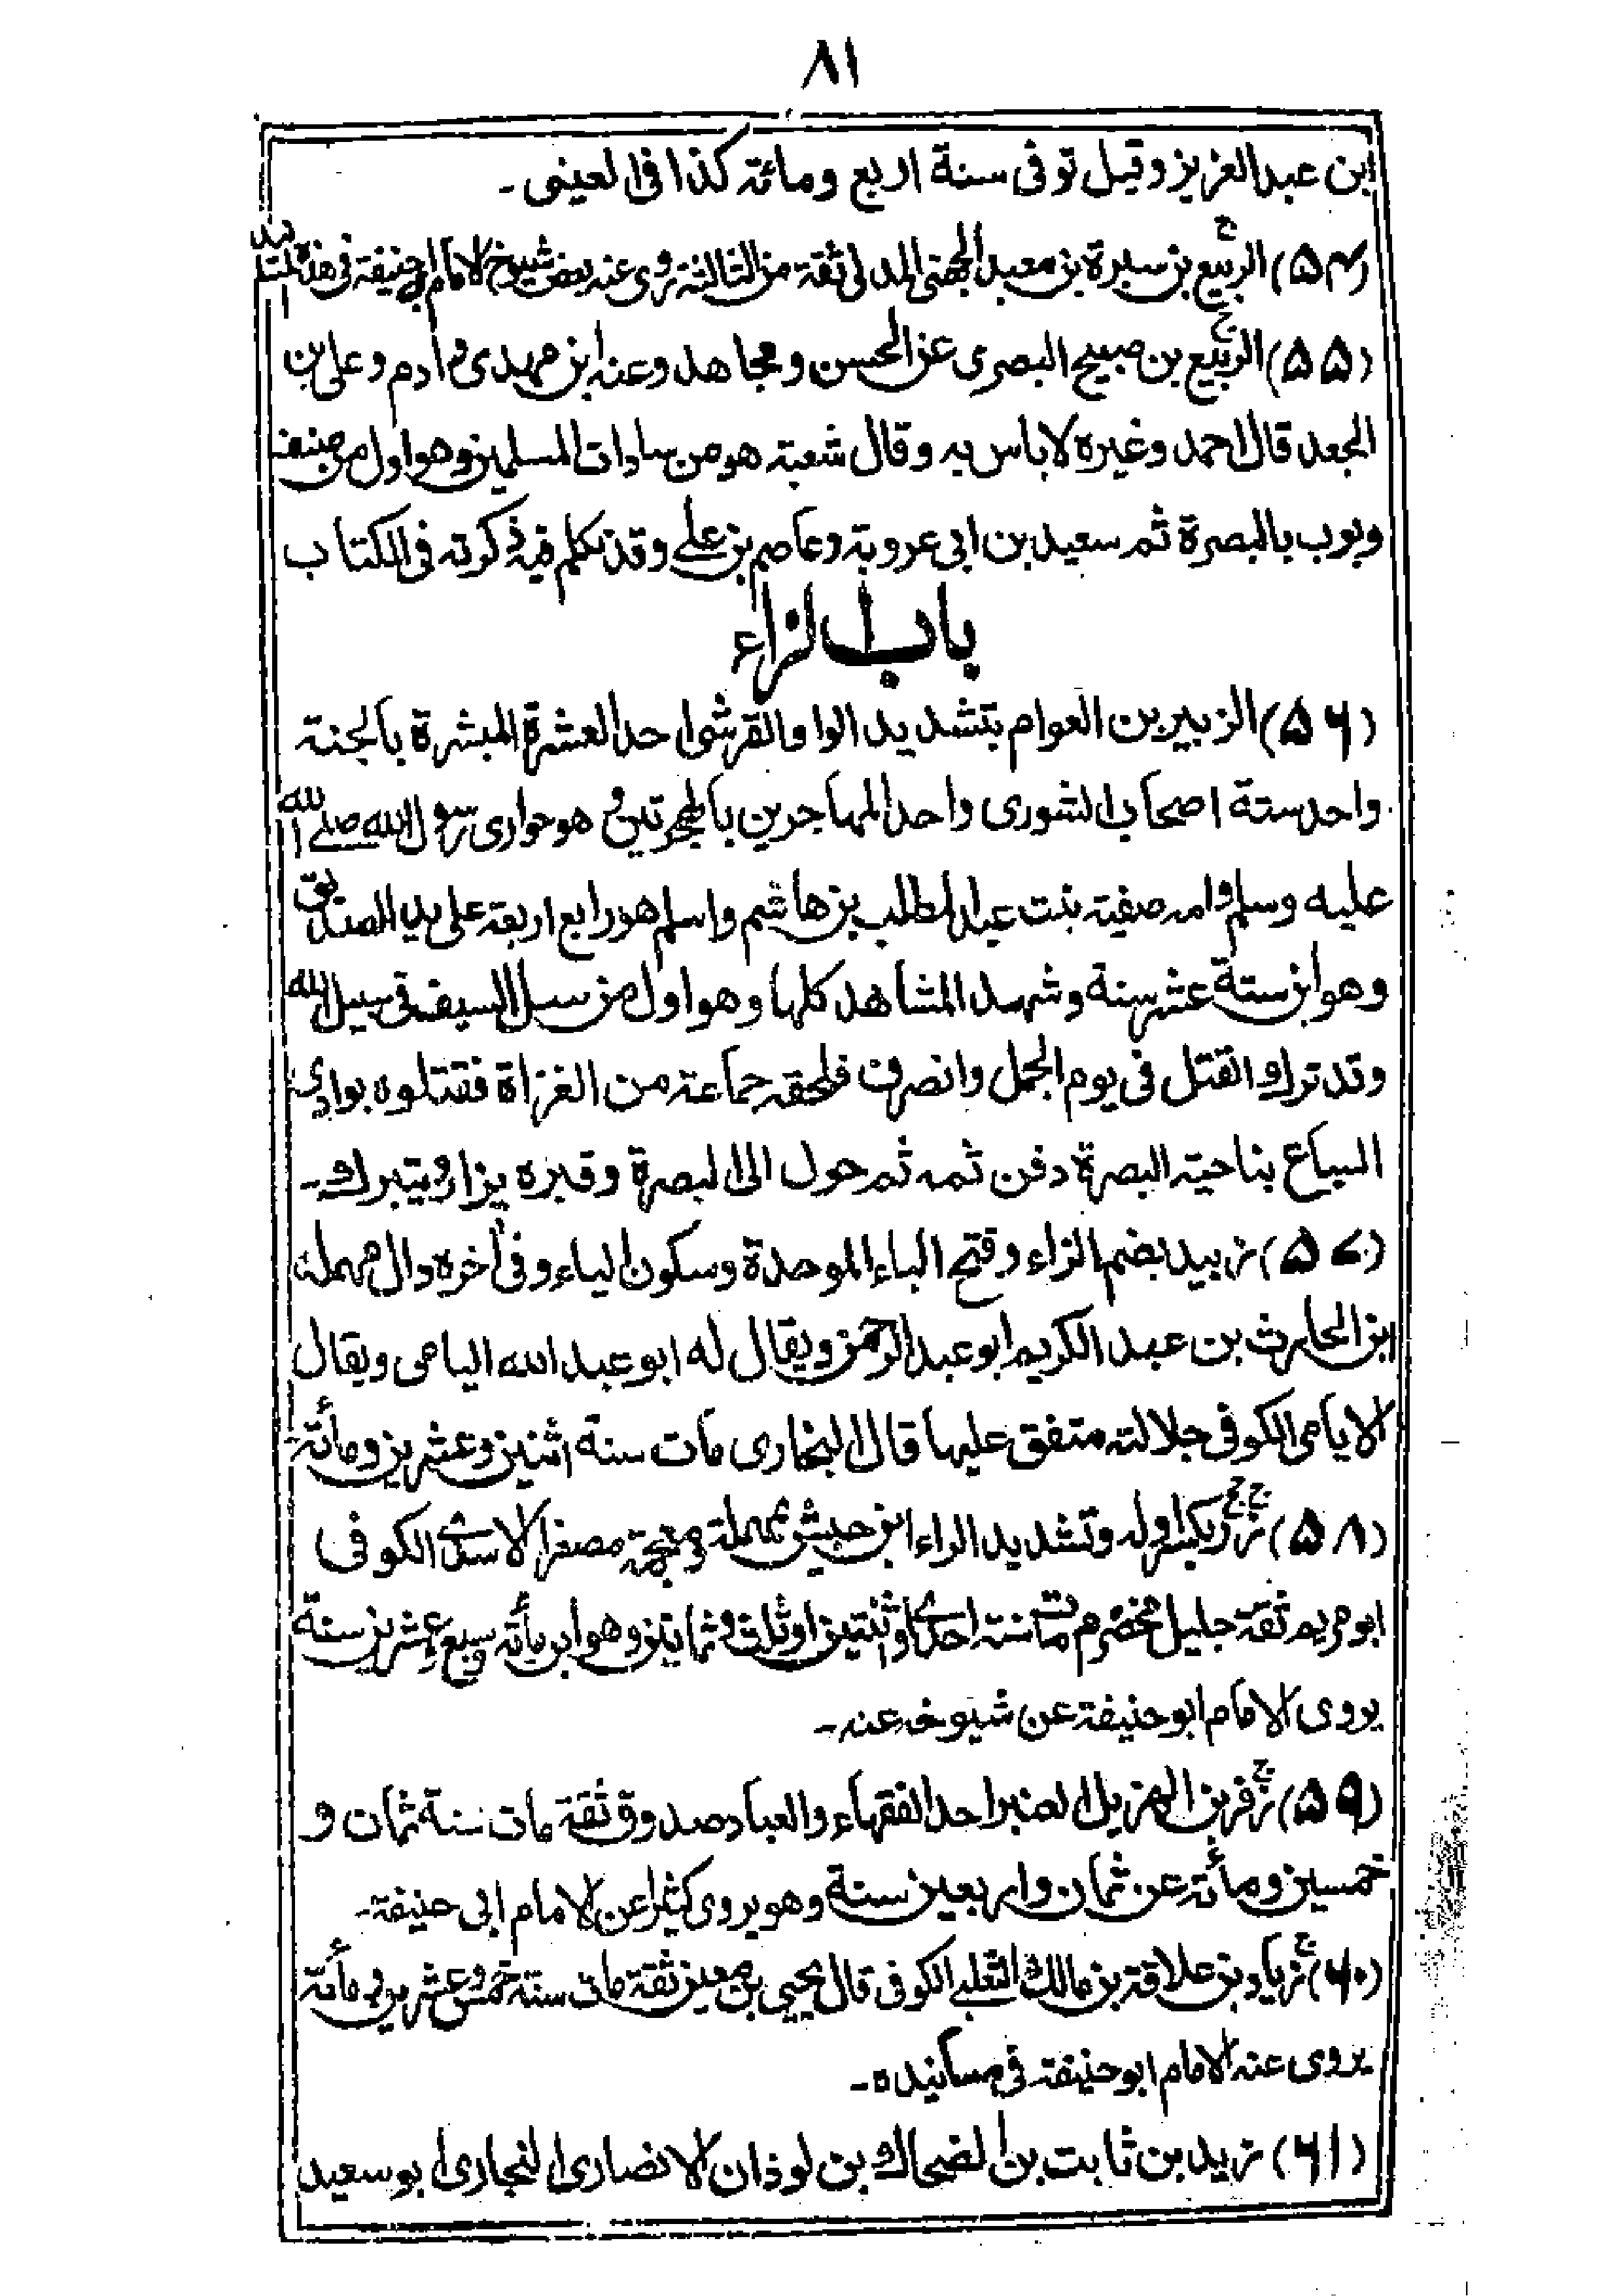 ۸۱
ابن عبد العزيز وقيل توفى سنة اربع ومائة كذا فى العينى۔
(۵۴) الربيع بن سبرة بن معبد الجهنى المدنى ثقة من الثالثة روى عنه بعض شيوخ الامام ابى حنيفة فى هذه
(۵۵) الربيع بن صبيح البصرى عن الحسن ومجاهد وعنه ابن مهدى وآدم وعلى بن
الجعد قال احمد وغيره لا باس به وقال شعبة هو من سادات المسلمين وهو اول من صنف
وبوب بالبصرة ثم سعيد بن ابى عروبة وعاصم بن على وقد تكلم فيه ذكرته فى الكتاب
باب الزاء
(۵۶) الزبير بن العوام بتشديد الواو القرشى احد العشرة المبشرة بالجنة
واحد ستة اصحاب الشورى واحد المهاجرين بالهجرتين وهو حوارى رسول الله صلى الله
عليه وسلم وامه صفية بنت عبد المطلب بن هاشم واسلم هو رابع اربعة على يد الصديق
وهو ابن ستة عشر سنة وشهد المشاهد كلها وهو اول من سل السيف فى سبيل الله
وقد ترك القتل فى يوم الجمل وانصرف فلحقه جماعة من الغزاة فقتلوه بوادى
السباع بناحية البصرة دفن ثمه ثم حول الى البصرة وقبره يزار ويتبرك۔
(۵۷) زبيد بضم الزاء وفتح الباء الموحدة وسكون الياء وفى آخره دال مهملة
ابن الحارث بن عبد الكريم ابو عبد الرحمن ويقال له ابو عبد الله اليامى ويقال
الايامى الكوفى جلالته متفق عليها قال البخارى مات سنة اثنين وعشرين ومأئة
(۵۸) زر بكسر اوله وتشديد الراء ابن حبيش بمهملة ومعجمة مصغرا الاسدى الكوفى
ابو مريم ثقة جليل مخضرم مات سنة احدى او اثنتين او ثلث وثمانين وهو ابن مأئة وسبع عشرين سنة
يروى الامام ابو حنيفة عن شيوخه عنه۔
(۵۹) زفر بن الهزيل العنبرا حد الفقهاء والعباد صدوق ثقة مات سنة ثمان و
خمسين ومأئة عن ثمان واربعين سنة وهو يروى كثيرا عن الامام ابى حنيفة۔
(۶۰) زياد بن علاقة بن مالك الثعلبى الكوفى قال يحيى بن معين ثقة مات سنة خمس وعشرين ومأئة
يروى عنه الامام ابو حنيفة فى مسانيده۔
(۶۱) زيد بن ثابت بن الضحاك بن لوذان الانصارى النجارى ابو سعيد